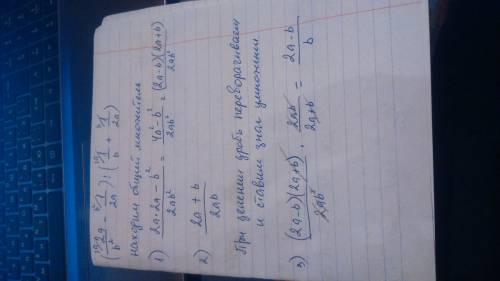 (^{2a\ }2a/b² - ^{b²\ }1/2a) : (^{2a\ }1/b + ^{b\ }1/2a)
находим общий множитель
1) (2a·2a - b²)/2ab² = (4a² - b²)/2ab² = (2a-b)(2a+b)/2ab²
2) (2a + b)/2ab
При делении дробь переворачиваем
и ставим знак умножения
3) (2a-b)(2a+b)/2ab² · 2ab/(2a+b) = (2a-b)/b